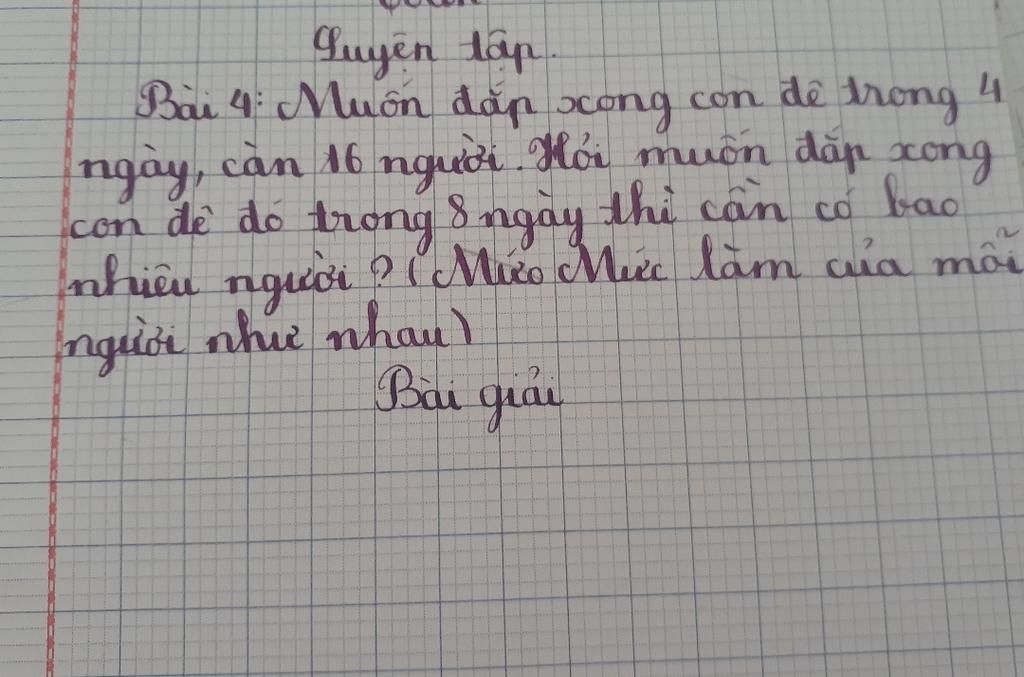 Luyện tập.
Bài 4: Muốn đắp xong con đê trong 4
ngày, cần 16 người. Hỏi muốn đắp xong
con đê đó trong 8 ngày thì cần có bao
nhiêu người? (Mức Mức làm của mỗi
người như nhau)
Bài giải